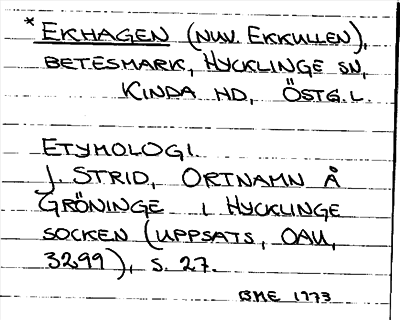 * EKHAGEN (NUV. EKKULLEN),
BETESMARK, HYCKLINGE SN,
KINDA HD, ÖSTG.L.
ETYMOLOGI.
J. STRID, ORTNAMN Å
GRÖNINGE I HYCKLINGE
SOCKEN (UPPSATS, OAU,
3299), S. 27.
BME 1973